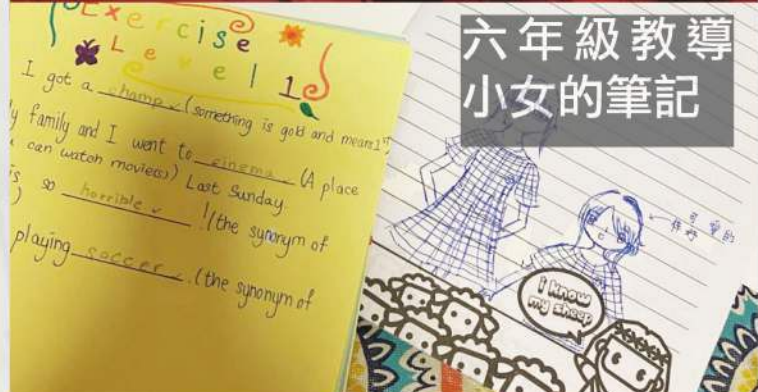 Exercise
Level 1
I got a champ ✓ (something is gold and means 1st
y family and I went to cinema ✓ (A place
u can watch movie(s)) Last Sunday.
is so horrible ✓ ! (the synonym of
)
playing soccer ✓. (the synonym of
六年級教導
小女的筆記
可愛的
i know
my sheep